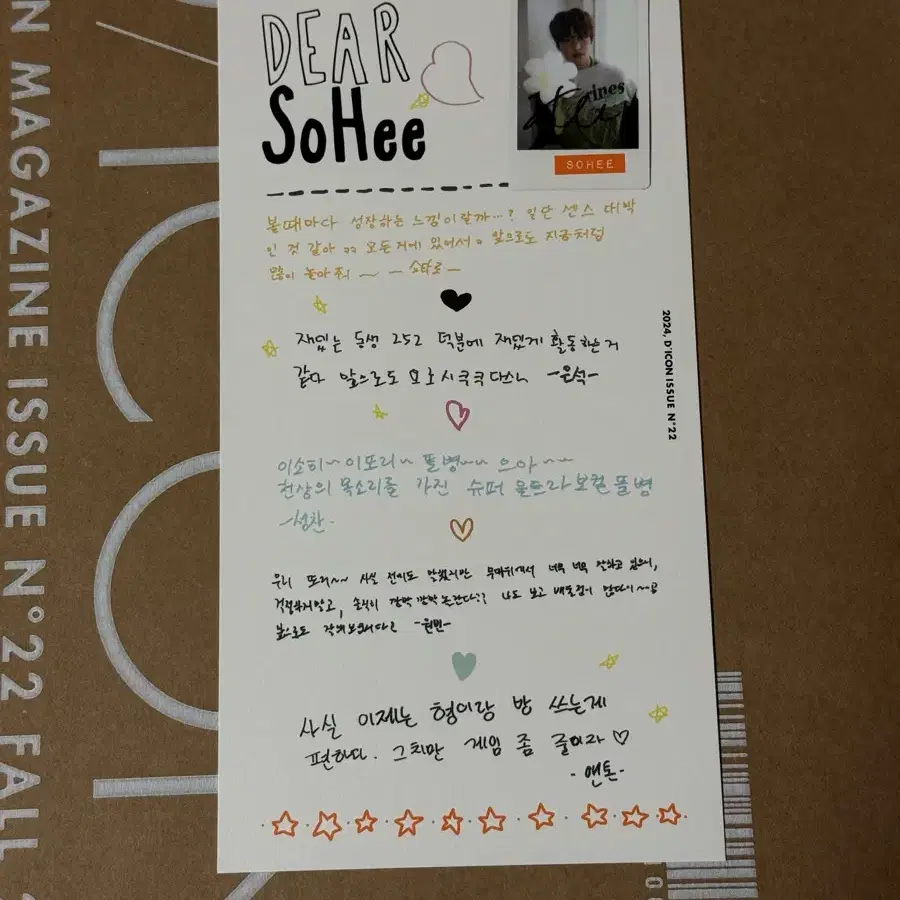 DEAR
SoHee
rines
SOHEE
볼때마다 성장하는 느낌이랄까...? 일단 센스 대박
인 것 같아 ㅋㅋ 모든거에 있어서 앞으로도 지금처럼
많이 놀아줘 ~ - 쇼타로 -
재밌는 동생 252 덕분에 재밌게 활동하는거
같다 앞으로도 으르시 쿡쿡 다스나 -은석-
이소히~ 이또리~ 똘병~~ 으아~~
천상의 목소리를 가진 슈퍼 울트라 보컬 똘병
-성찬-
우리 또리~~ 사실 전에도 말했지만 무대위에서 너무 너무 잘하고 있으니,
걱정하지말고, 솔직히 깜짝 깜짝 논란다?? 나도 보고 배울점이 많다이~
앞으로도 잘해보자 -원빈-
사실 이제는 형이랑 방 쓰는게
편하다. 그치만 게임 좀 줄이라 ♡
- 앤톤 -
2024, D'ICON ISSUE N°22
N MAGAZINE ISSUE N°22 FALL